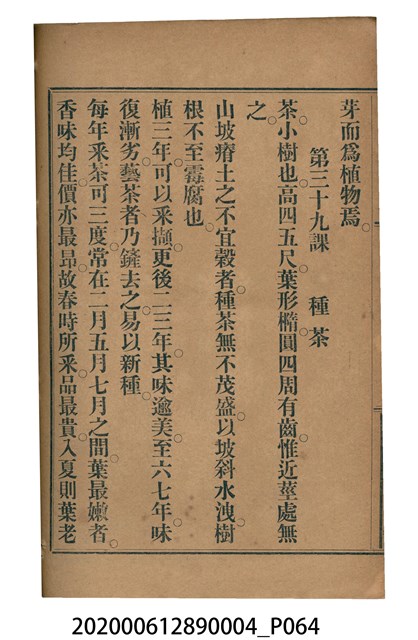 芽而爲植物焉。
第三十九課　種茶
茶。小樹也。高四五尺。葉形橢圓。四周有齒。惟近莖處無
之。
山坡瘠土之不宜穀者。種茶無不茂盛。以坡斜水洩。樹
根不至霉腐也。
植三年。可以采擷。更後二三年。其味逾美。至六七年。味
復漸劣。藝茶者乃鏟去之。易以新種。
每年采茶可三度。常在二月五月七月之間。葉最嫩者。
香味均佳。價亦最昂。故春時所采。品最貴。入夏則葉老
202000612890004_P064